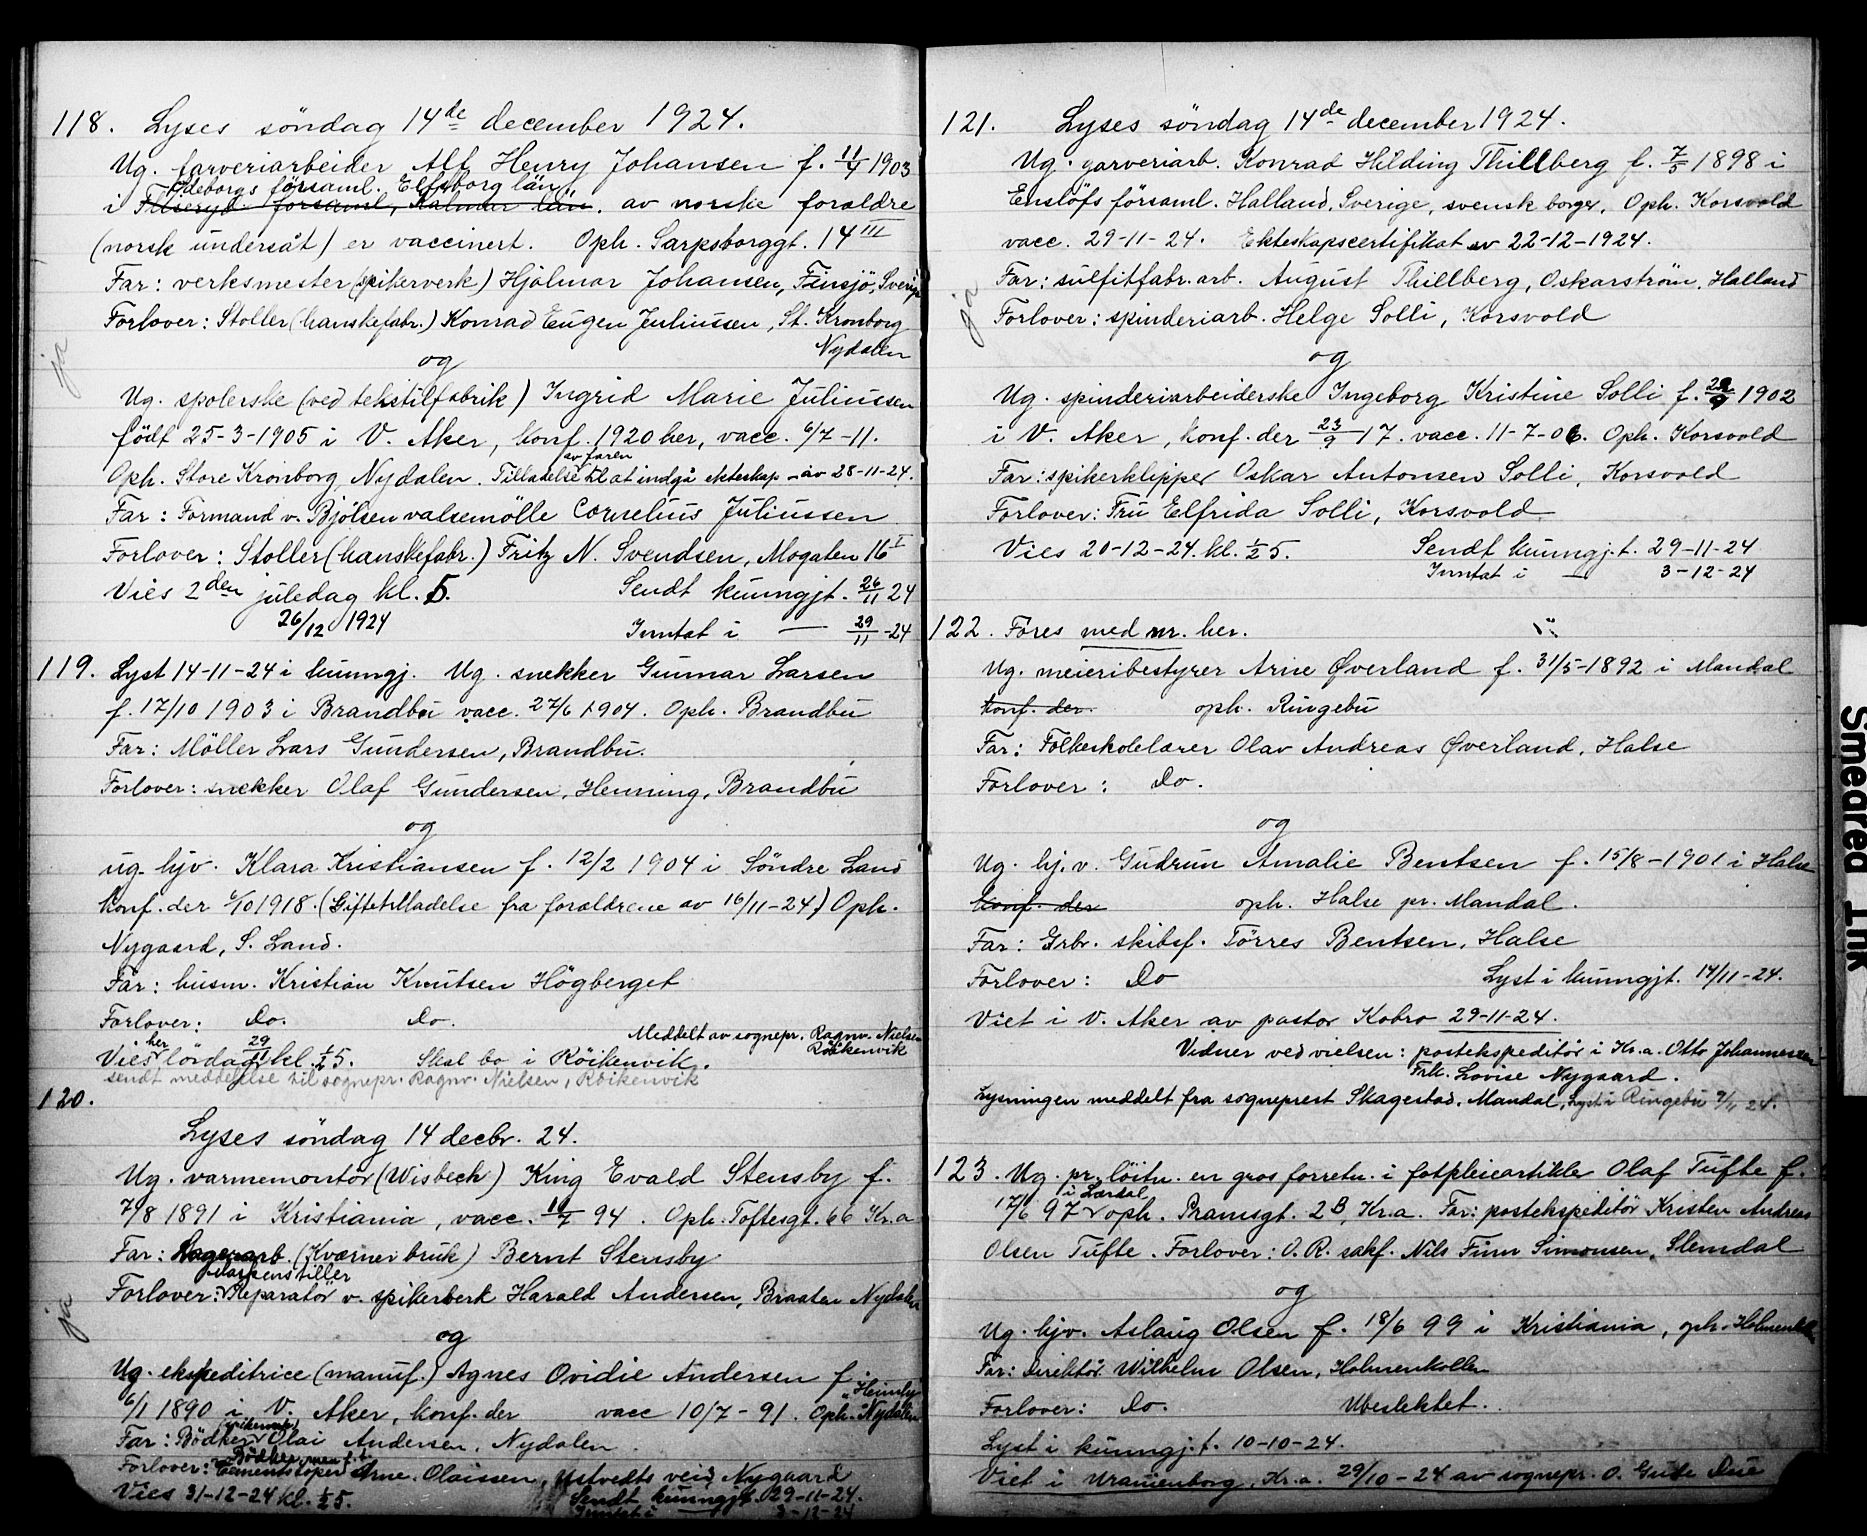 118. Lyses söndag 14de december 1924.
Ug. farveriarbeider Alf Henry Johansen f. 11/4 1903
Ödeborgs församl. Elfsborg län
i Fliseryd församl, Kalmar län. av norske forældre
(norsk undersåt) er vaccinert. Oph. Sarpsborggt. 14 III
Far: verksmester (spikerverk) Hjalmar Johansen, Finsjö, Sverige
Forlover: Stoller (hanskefabr.) Konrad Eugen Juliussen, St. Kronborg
Nydalen
ja
og
Ug. spolerske (ved tekstilfabrik) Ingrid Marie Juliussen
født 25-3-1905 i V. Aker, konf. 1920 her, vacc. 6/7 -11.
av faren
Oph. Store Kronborg, Nydalen. Tilladelse til at indgå ekteskap - av 28-11-24.
Far: Formand v. Bjölsen valsemölle Cornelius Juliussen
Forlover: Stoller (hanskefabr.) Fritz N. Svendsen, Mogaten 16 I
Vies 2den juledag kl. 5. Sendt kunngjt. 26/11 24
26/12 1924 Inntat i — 29/11 -24
119. Lyst 14-11-24 i kunngj. Ug. snekker Gunnar Larsen
f. 17/10 1903 i Brandbu vacc. 27/6 1904. Oph. Brandbu
Far: Möller Lars Gundersen, Brandbu.
Forlover: snekker Olaf Gundersen, Henning, Brandbu
og
ug. hjv. Klara Kristiansen f. 12/2 1904 i Söndre Land
konf. der 6/10 1918. (Giftetilladelse fra forældrene av 16/11-24.) Oph.
Nygaard, S. Land.
Far: husm. Kristian Knutsen Högberget
Forlover: Do. Do.
Meddelt av sognepr. Ragnv. Nielsen
Röikenvik
her
Vies lördag 29/11 kl. ½ 5. Skal bo i Röikenvik.
sendt meddelelse til sognepr. Ragnv. Nielsen, Röikenvik
120.
Lyses söndag 14 decbr. 24.
Ug. varmemontör (Wisbech) King Evald Stensby f.
7/8 1891 i Kristiania, vacc. 10/7 94. Oph. Toftesgt. 66 Kr.a
Far: Lagerarb. (Kværner bruk) Bernt Stensby
Maskenstiller
Forlover: Reparatör v. spikerverk Harald Andersen, Braaten Nydalen
ja
og
Ug. ekspeditrice (manuf.) Agnes Ovidie Andersen f.
"Heimly"
6/1 1890 i V. Aker, konf. der vacc 10/7 - 91. Oph. Nydalen
(spikerverk)
Far: Bödker Olai Andersen, Nydalen.
Bödker, men f.t.
Forlover: Cementstöper Arne Olaissen, Ustvedts vei, Nygaard
Vies 31-12-24 kl. ½ 5. Sendt kunngjt. 29-11-24.
Inntat i 3-12-24
121. Lyses söndag 14de december 1924.
Ug. garveriarb. Konrad Hilding Thillberg f. 7/5 1898 i
Enslöfs församl. Halland, Sverige, svensk borger. Oph. Korsvold
vacc. 29-11-24. Ekteskapscertifikat av 22-12-1924.
Far: sulfitfabr. arb. August Thillberg, Oskarström, Halland
Forlover: spinderiarb. Helge Solli, Korsvold
ja
og
Ug. spinderiarbeiderske Ingeborg Kristine Solli f. 1902
i V. Aker, konf. der 23/9 17. vacc. 11-7-06. Oph. Korsvold
Far: spikerklipper Oskar Antonsen Solli, Korsvold
Forlover: Fru Elfrida Solli, Korsvold
Vies 20-12-24. kl. ½ 5. Sendt kunngj.t. 29-11-24
Inntat i — 3-12-24
122. Föres med nr. her.
Ug. meieribestyrer Arne Øverland f. 31/5-1892 i Mandal
konf. der. oph. Ringebu
Far: Folkeskolelærer Olav Andreas Øverland, Halse
Forlover: Do.
og
Ug. hj.v. Gudrun Amalie Bentsen f. 15/8-1901 i Halse
konf. der oph. Halse pr. Mandal.
Far: Grbr. skibsf. Törres Bentsen, Halse
Forlover: Do Lyst i kunngjt. 14/11-24.
Viet i V. Aker av pastor Kobro 29-11-24.
Vidner ved vielsen: postekspeditör i Kr.a. Otto Johannessen
Frk. Lovise Nygaard.
Lysningen meddelt fra sogneprest Skagestad, Mandal, Lyst i Ringebu 9/11 24.
123. Ug. pr. löitn. en gros forretn. i fotpleieartikler Olaf Tufte f.
i Lærdal
17/6 97 oph. Pramsgt. 2B, Kr.a. Far: postekspeditör Kristen Andreas
Olsen Tufte. Forlover: O. R. sakf. Nils Finn Simonsen, Slemdal
og
Ug. hjv. Aslaug Olsen f. 18/6 99 i Kristiania, oph. Holmenkollen
Far: Direktör Wilhelm Olsen, Holmenkollen
Forlover: Do. Ubeslektet.
Lyst i kunngj.t. 10-10-24.
Viet i Uranienborg, Kr.a. 29/10-24 av sognepr. O. Gude Due
Smeared Ink